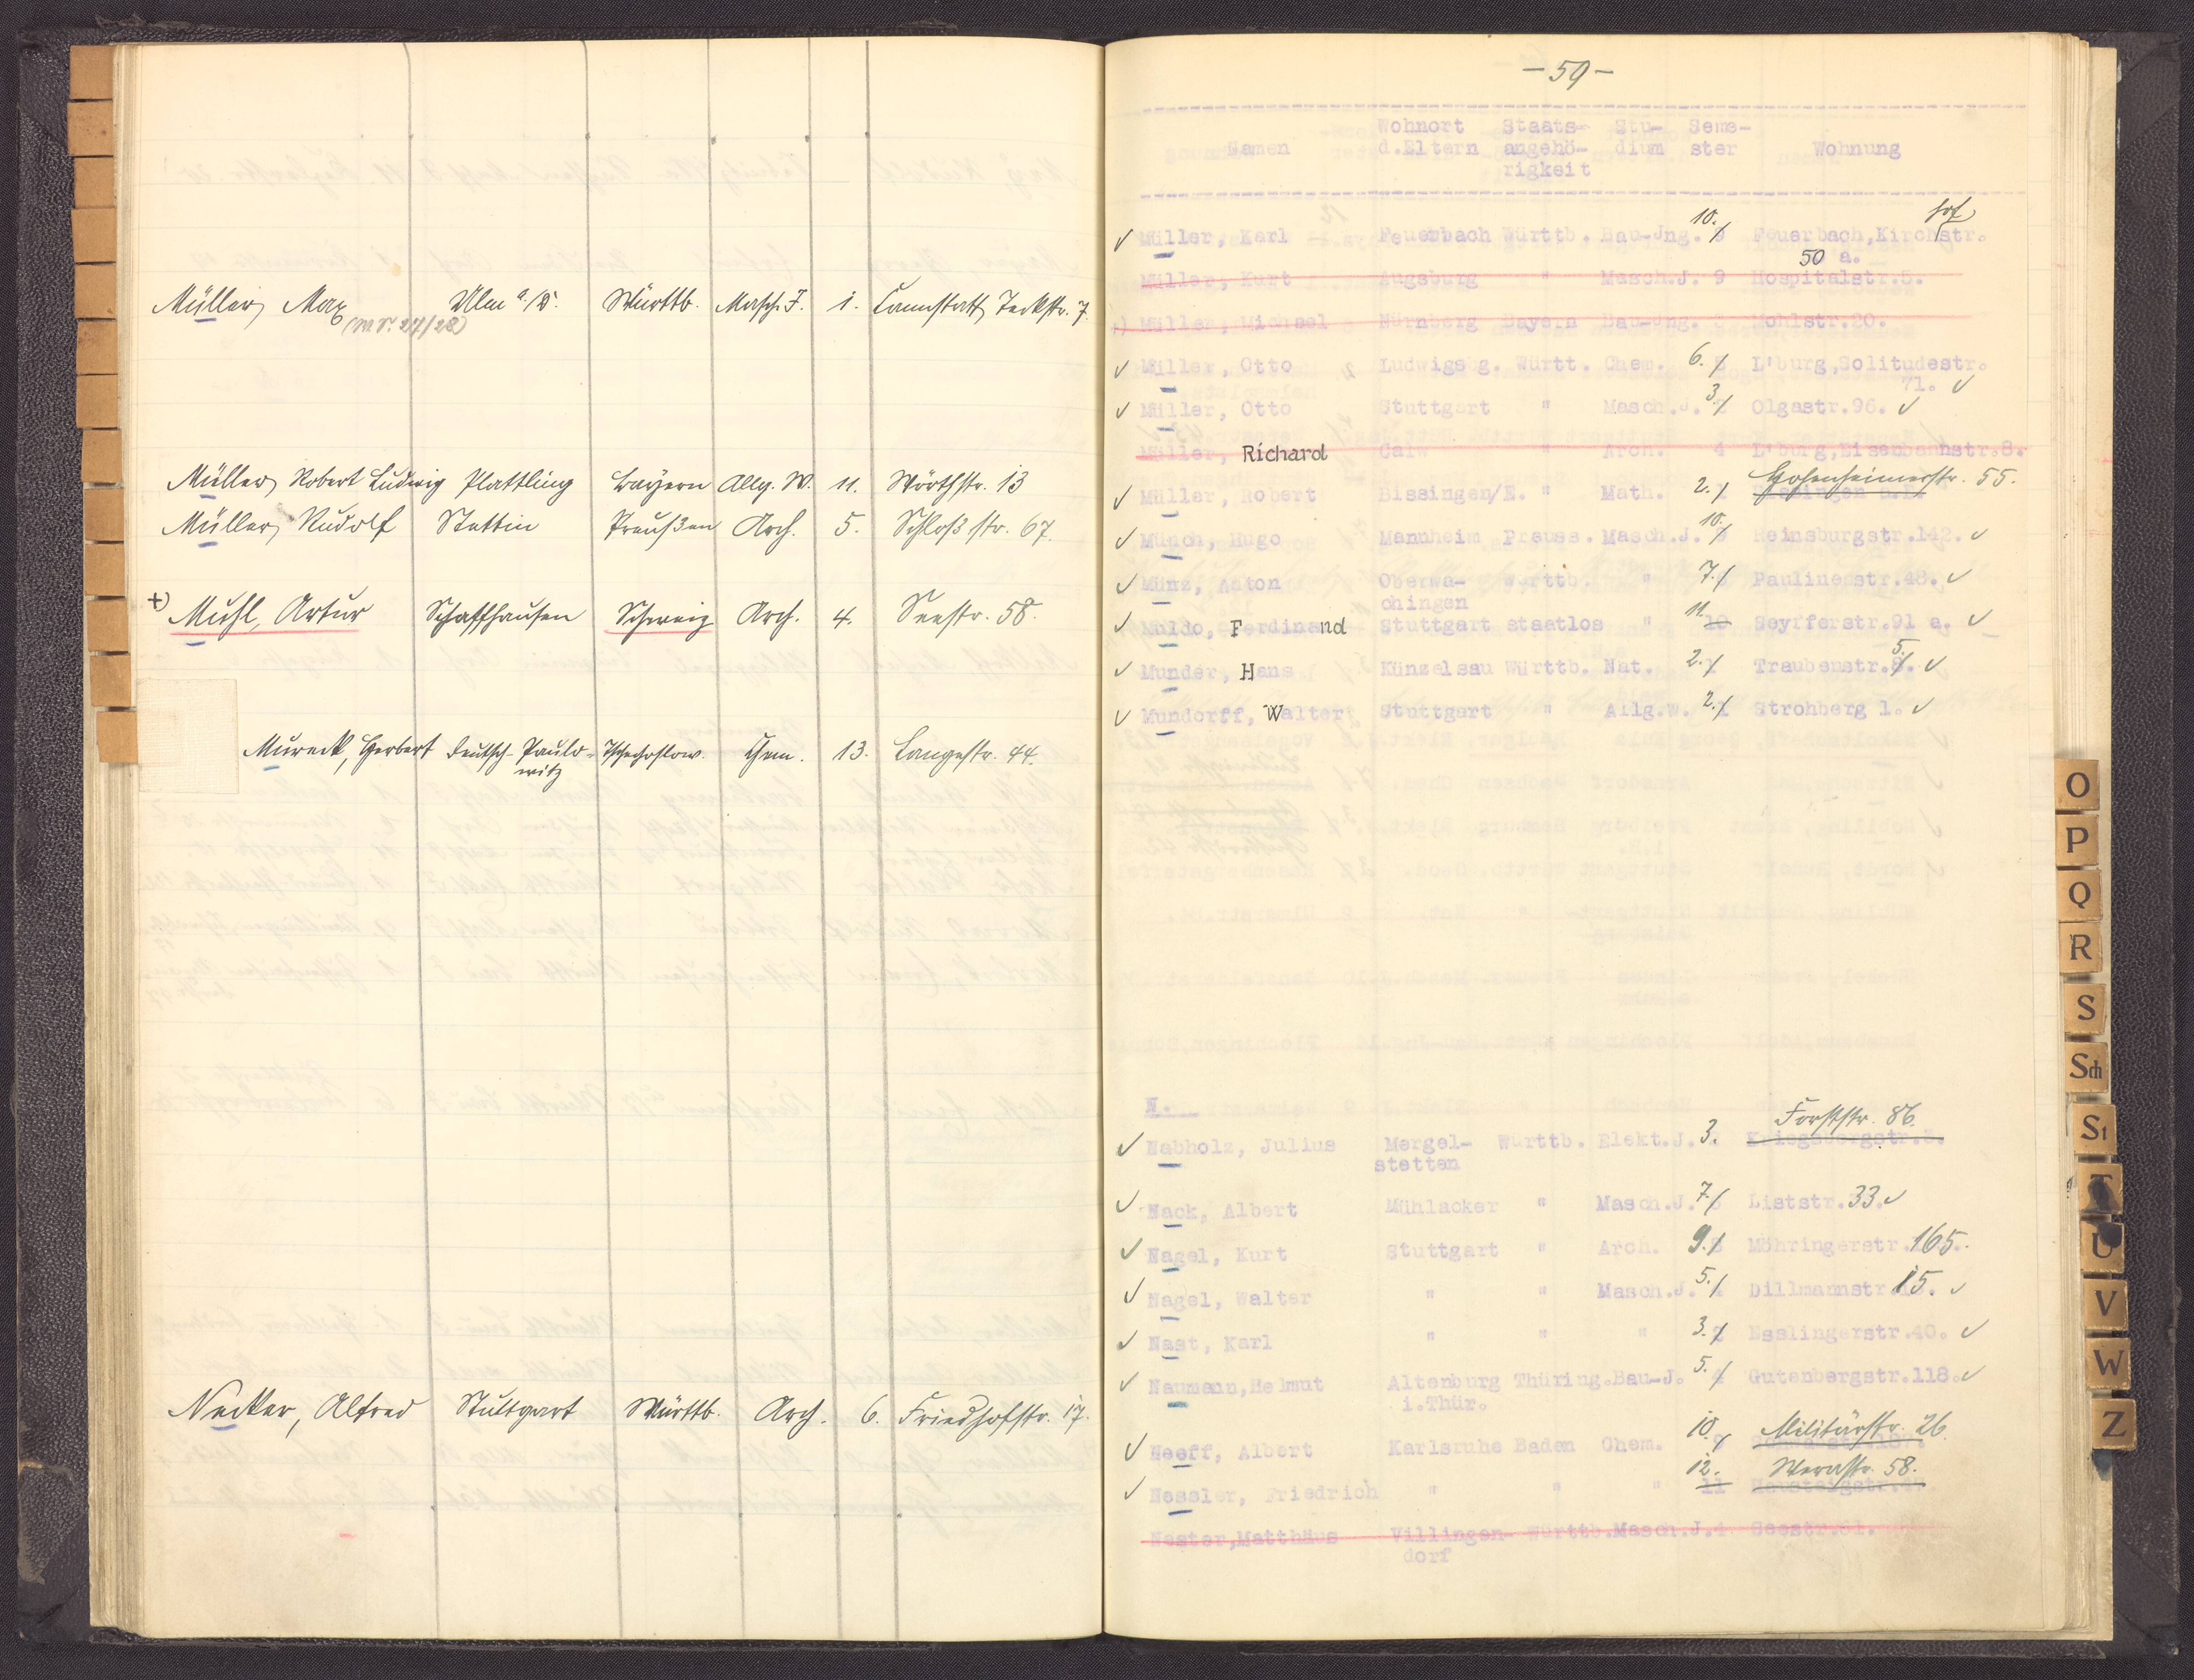 Müller, Max Ulm a./D. Württb. Masch. I. 1. Cannstatt, Teckstr. 7
(W.S. 27/28)
Müller, Robert Ludwig Plattling Bayern Allg. W. 11. Wörthstr. 13
Müller, Rudolf Stettin Preußen Arch. 5. Schloßstr. 67.
+) Muhl, Artur Schaffhausen Schweiz Arch. 4. Seestr. 58.
Mureck, Herbert Deutsch-Paulo- Tschechoslow. Chem. 13. Langestr. 44.
witz
Necker, Alfred Stuttgart Württb. Arch. 6. Friedhofstr. 17.
- 59 -
Wohnort Staats- Stu- Seme-
Namen d.Eltern angehö- dium ster Wohnung
rigkeit
hof
10.
Müller, Karl Feuerbach Württb. Bau-Jng. 9 Feuerbach,Kirchstr.
50 a.
Müller, Kurt Augsburg " Masch.J. 9 Hospitalstr.5.
Müller, Michael Nürnberg Bayern Bau-Jng. Mohlstr.20.
Müller, Otto Ludwigsbg. Württ. Chem. 6. 5 L'burg,Solitudestr.
71.
Müller, Otto Stuttgart " Masch.J. 3. 2 Olgastr.96.
Müller, Richard Calw " Arch. 4 L'burg,Eisenbahnstr.8.
Hohenheimerstr. 55.
Müller, Robert Bissingen/E. " Math. 2. 1
Münch, Hugo Mannheim Preuss. Masch.J. 10. Reinsburgstr.142.
Münz, Anton Oberwa- Württb. " 7. Paulinenstr.48.
chingen
Muldo, Ferdinand Stuttgart staatlos " 11. 10 Seyfferstr.91 a.
Munder, Hans Künzelsau Württb. Nat. 2. 1 Traubenstr.8. 5.
Mundorff, Walter Stuttgart " Allg.W. 2. 1 Strohberg 1.
N.
Forststr. 86.
Nabholz, Julius Mergel- Württb. Elekt.J. 3. Kriegsbergstr.
stetten
Nack, Albert Mühlacker " Masch.J. 7. 6 Liststr.33.
Nagel, Kurt Stuttgart " Arch. 9. 8 Möhringerstr.165.
Nagel, Walter " " Masch.J. 5. Dillmannstr.15.
Nast, Karl " " " 3. 2 Esslingerstr.40.
Naumann,Helmut Altenburg Thüring.Bau-J. 5. 4 Gutenbergstr.118.
i.Thür.
Militärstr. 26.
Neeff, Albert Karlsruhe Baden Chem. 10. 9
Werastr. 58.
Nessler, Friedrich " " " 12. 11
Nester,Matthäus Villingen- Württb.Masch.J.4 Seestr.
dorf
O
P
Q
R
S
Sch
St
T
U
V
W
Z